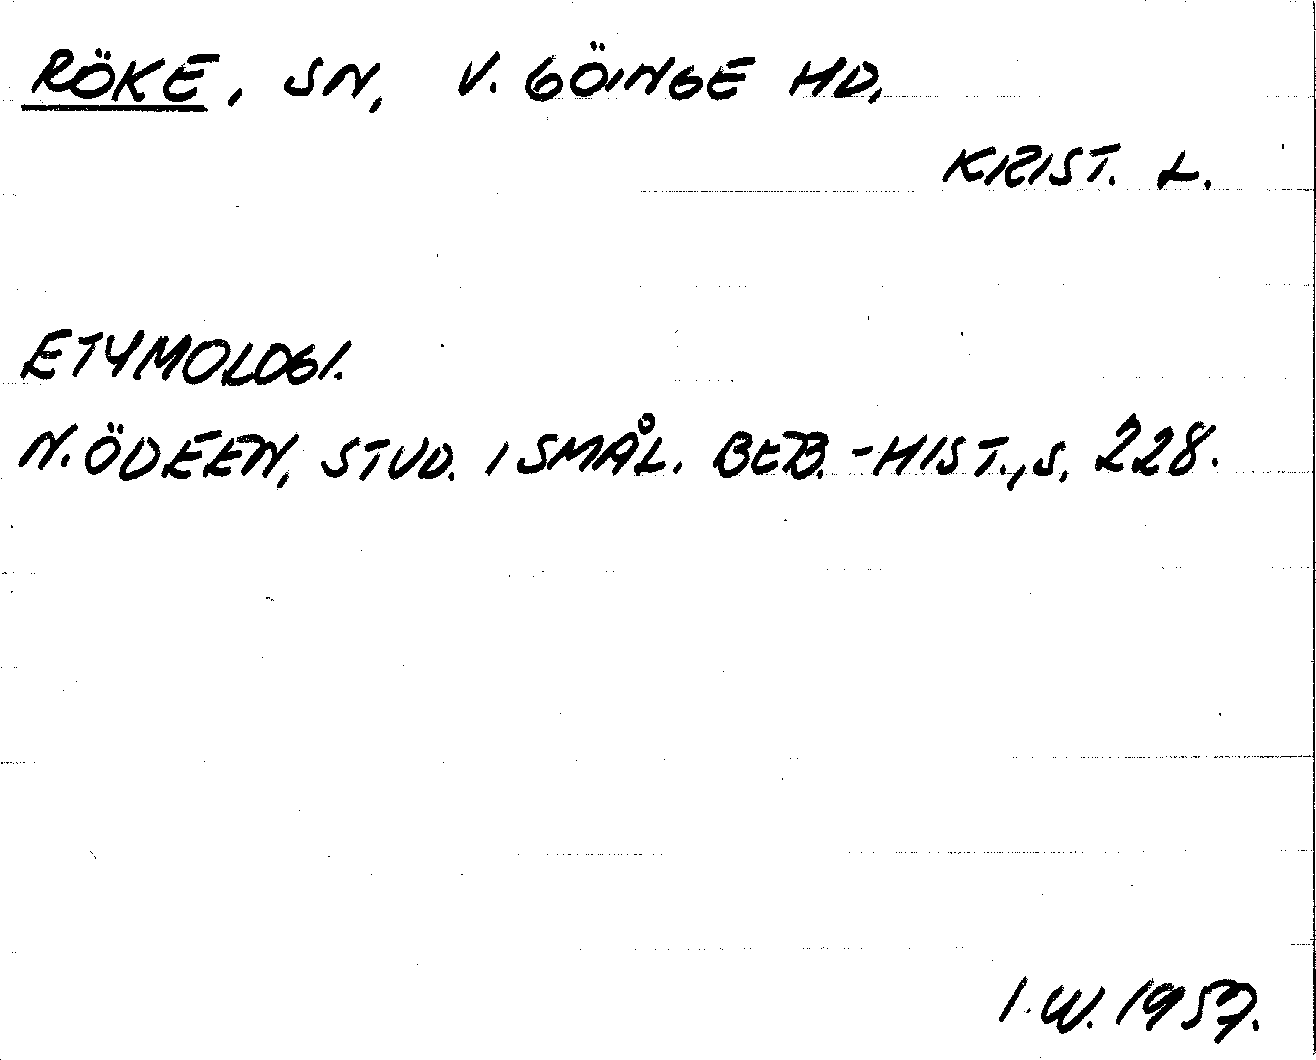 RÖKE, SN, V. GÖINGE HD,
KRIST. L.
ETYMOLOGI.
N. ÖDEEN, STUD. I SMÅL. BEB.-HIST., S, 228.
I.W. 1957.